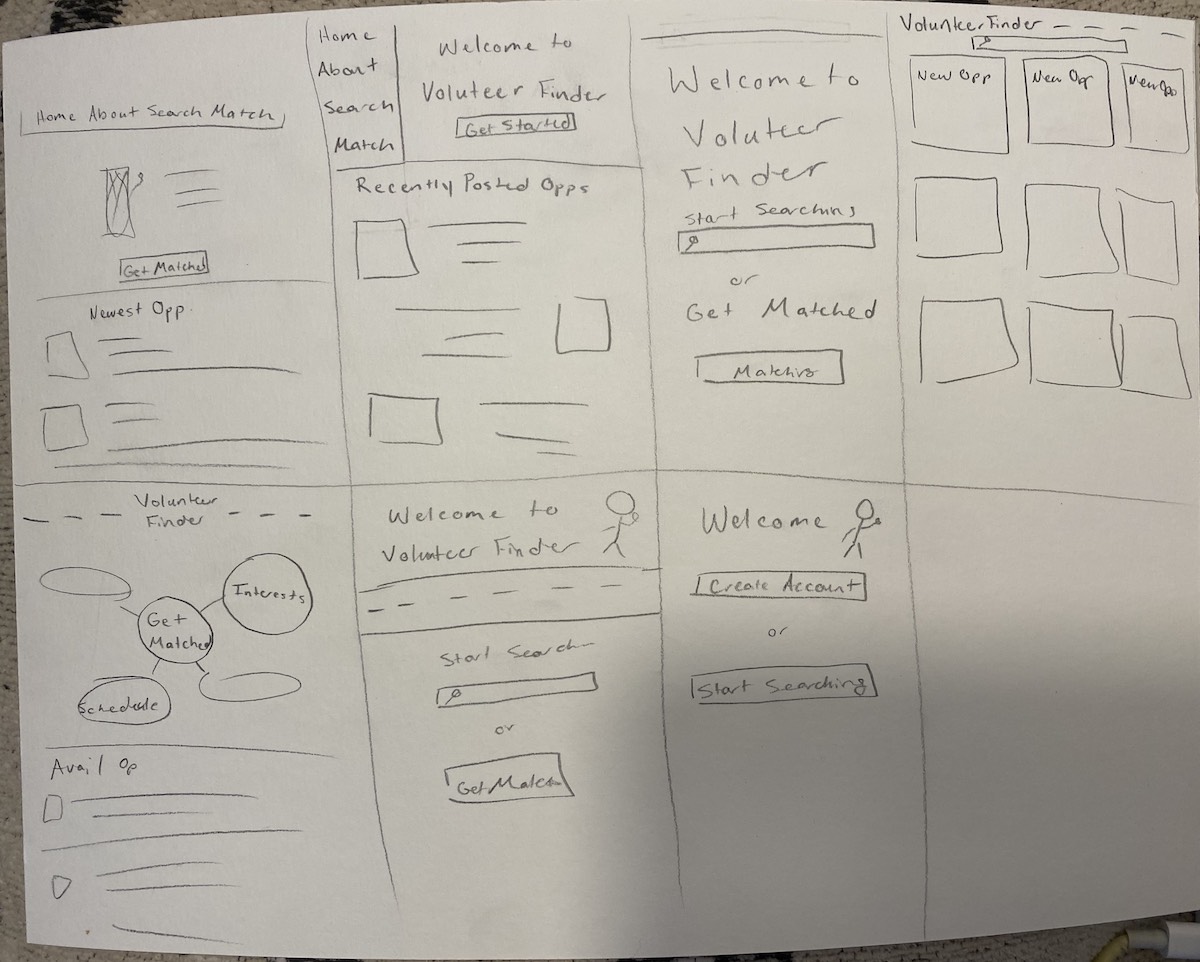 Home About Search Match
Get Matched
Newest Opp.
Home
About
Search
Match
Welcome to
Voluteer Finder
Get Started
Recently Posted Opps
Welcome to
Voluteer
Finder
Start Searching
or
Get Matched
Matching
Volunteer Finder
New Opp
New Opp
New Opp
Volunteer
Finder
Interests
Get
Matched
Schedule
Avail Op
Welcome to
Volunteer Finder
Start Search
or
Get Match
Welcome
Create Account
or
Start Searching